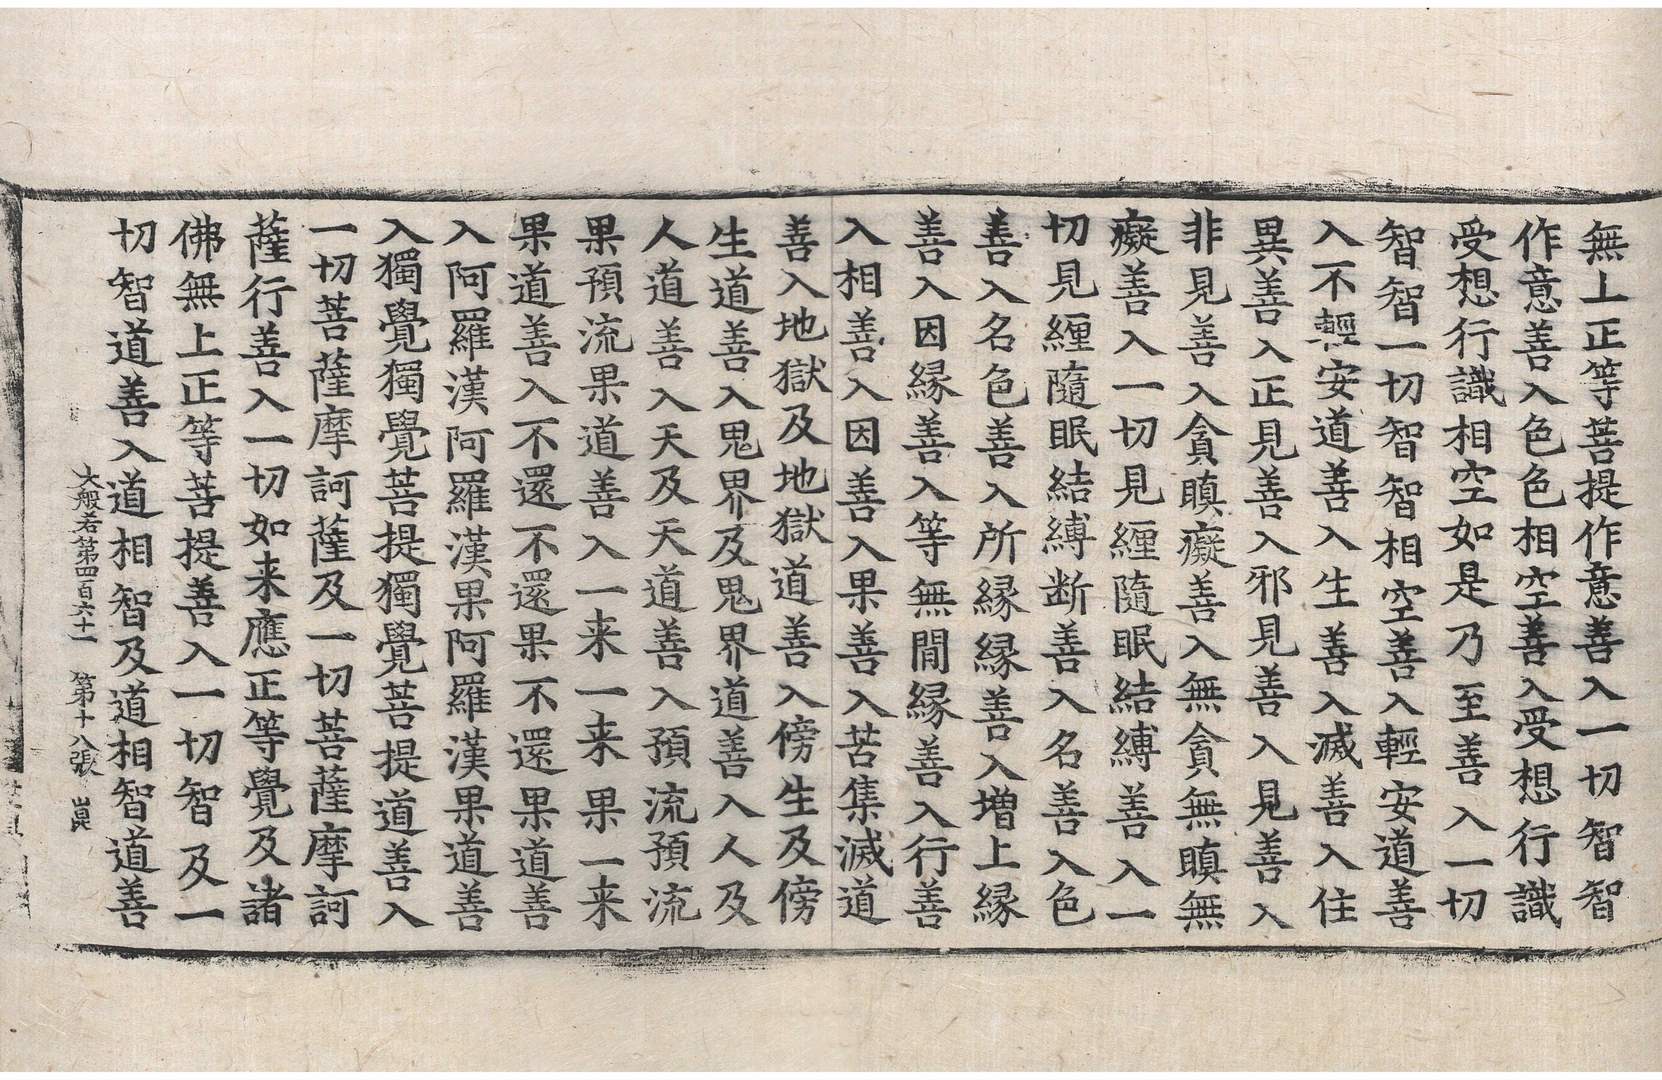 無上正等菩提作意善入一切智智
作意善入色色相空善入受想行識
受想行識相空如是乃至善入一切
智智一切智智相空善入輕安道善
入不輕安道善入生善入滅善入住
異善入正見善入邪見善入見善入
非見善入貪瞋癡善入無貪無瞋無
癡善入一切見纏隨眠結縛善入一
切見纏隨眠結縛断善入名善入色
善入名色善入所縁縁善入增上縁
善入因縁善入等無間縁善入行善
入相善入因善入果善入苦集滅道
善入地獄及地獄道善入傍生及傍
生道善入鬼界及鬼界道善入人及
人道善入天及天道善入預流預流
果預流果道善入一来一来果一来
果道善入不還不還果不還果道善
入阿羅漢阿羅漢果阿羅漢果道善
入獨覺獨覺菩提獨覺菩提道善入
一切菩薩摩訶薩及一切菩薩摩訶
薩行善入一切如来應正等覺及諸
佛無上正等菩提善入一切智及一
切智道善入道相智及道相智道善
大般若第四百六十一　第十八張　崑